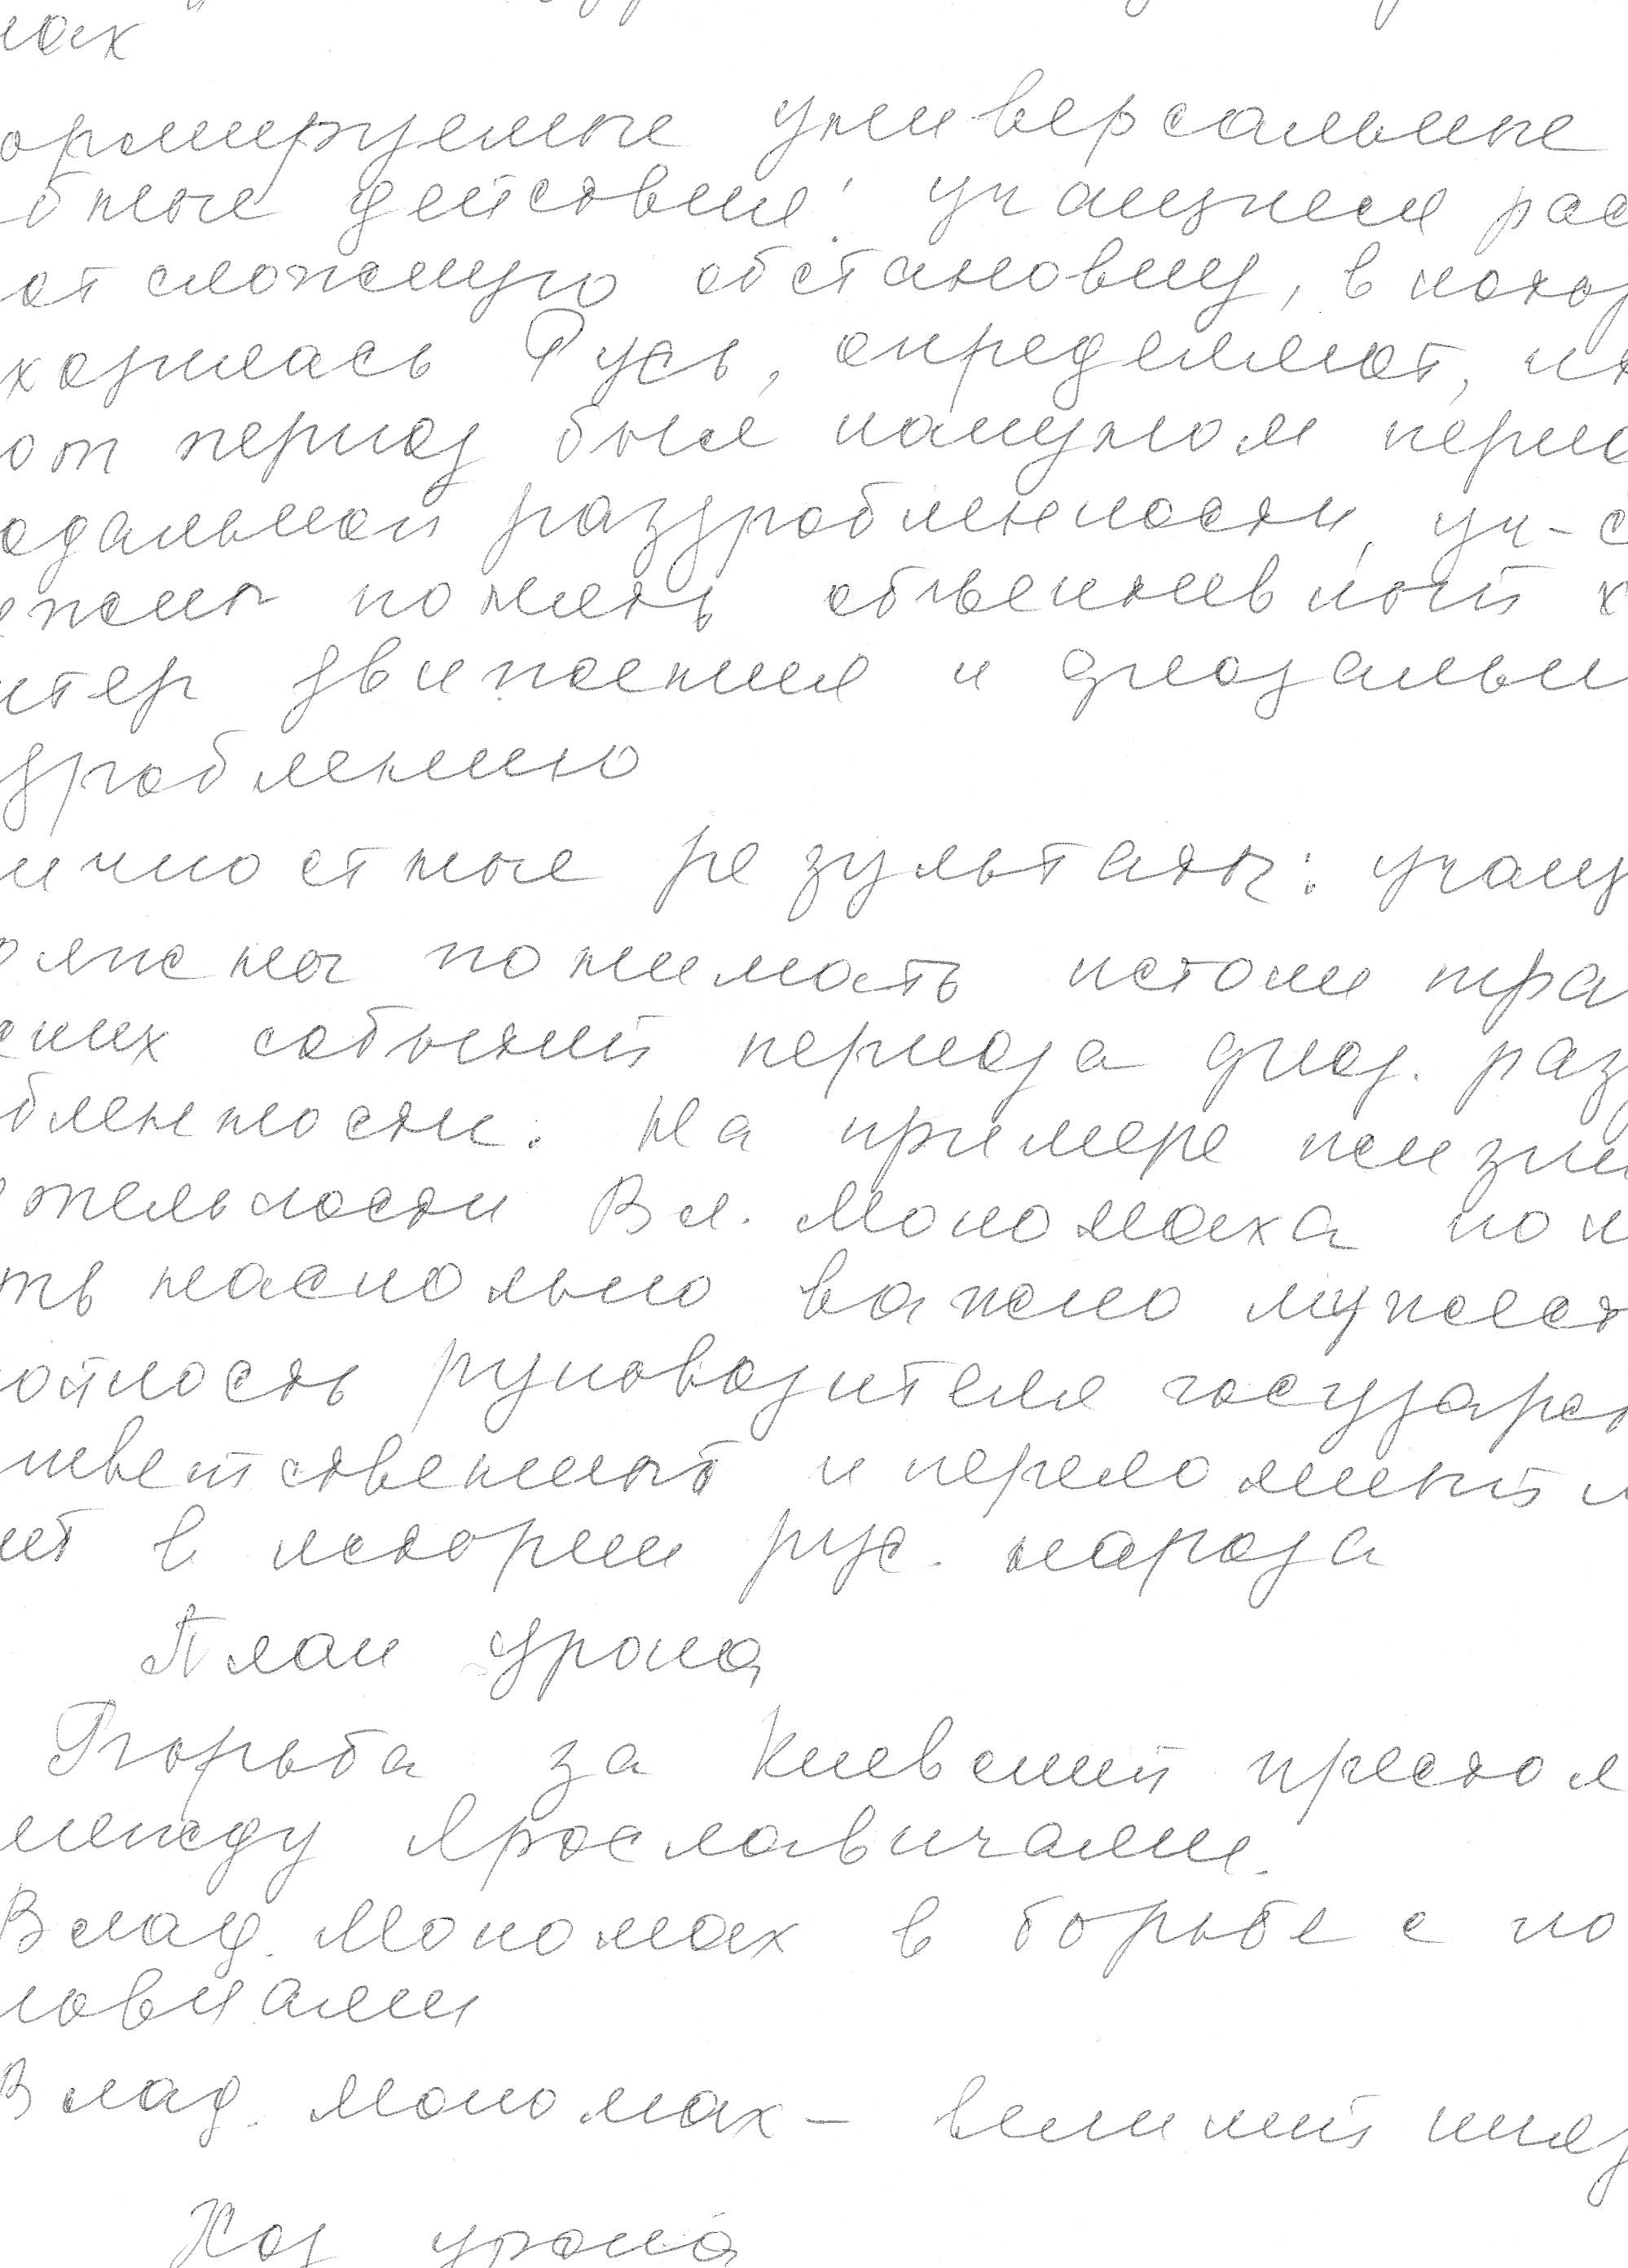 мах
ормируемые универсальные
бные действия: учащиеся рас
ют сложную обстановку, в котор
ходилась Русь, определяют, что
от период был кануном перио
одальной раздробленности, уч-с
лжны понять объективный х
ктер движения к феодальн
здроблению
ичностные результаты: учащ
олжны понимать истоки тра
ских событий периода феод. раз
бленности. На примере жизни
ятельности Вл. Мономаха пон
ть насколько важно мужест
ойкость руководителя государст
тветственный и переломный м
нт в истории рус. народа
План урока
Борьба за Киевский престол
между Ярославичами.
Влад. Мономах в борьбе с по
ловцами
Влад. Мономах – великий княз
Ход урока